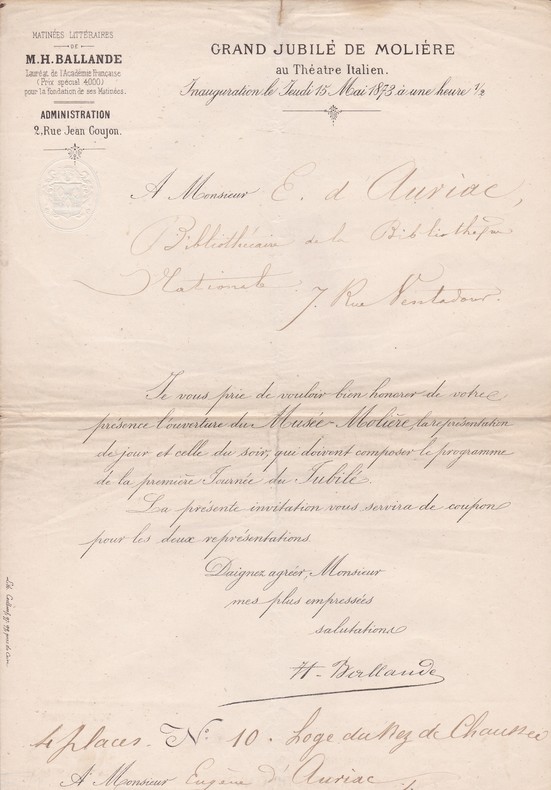 MATINÉES LITTÉRAIRES
DE
M.H. BALLANDE
Lauréat de l'Académie Française
(Prix spécial 4000)
pour la fondation de ses Matinées.
ADMINISTRATION
2, Rue Jean Goujon.
GRAND JUBILÉ DE MOLIÉRE
au Théatre Italien.
Inauguration le Jeudi 15 Mai 1873 à une heure 1/2
A Monsieur E. d'Auriac,
Bibliothécaire de la Bibliothèque
Nationale. 7, Rue Ventadour.
Je vous prie de vouloir bien honorer de votre
présence l'ouverture du Musée-Molière, la représentation
de jour et celle du soir, qui doivent composer le programme
de la première Journée du Jubilé.
La présente invitation vous servira de coupon
pour les deux représentations.
Daignez agréer, Monsieur
mes plus empressées
salutations
H. Ballande
4 places. N° 10 - Loge du Rez de Chaussée
A Monsieur Eugène d'Auriac